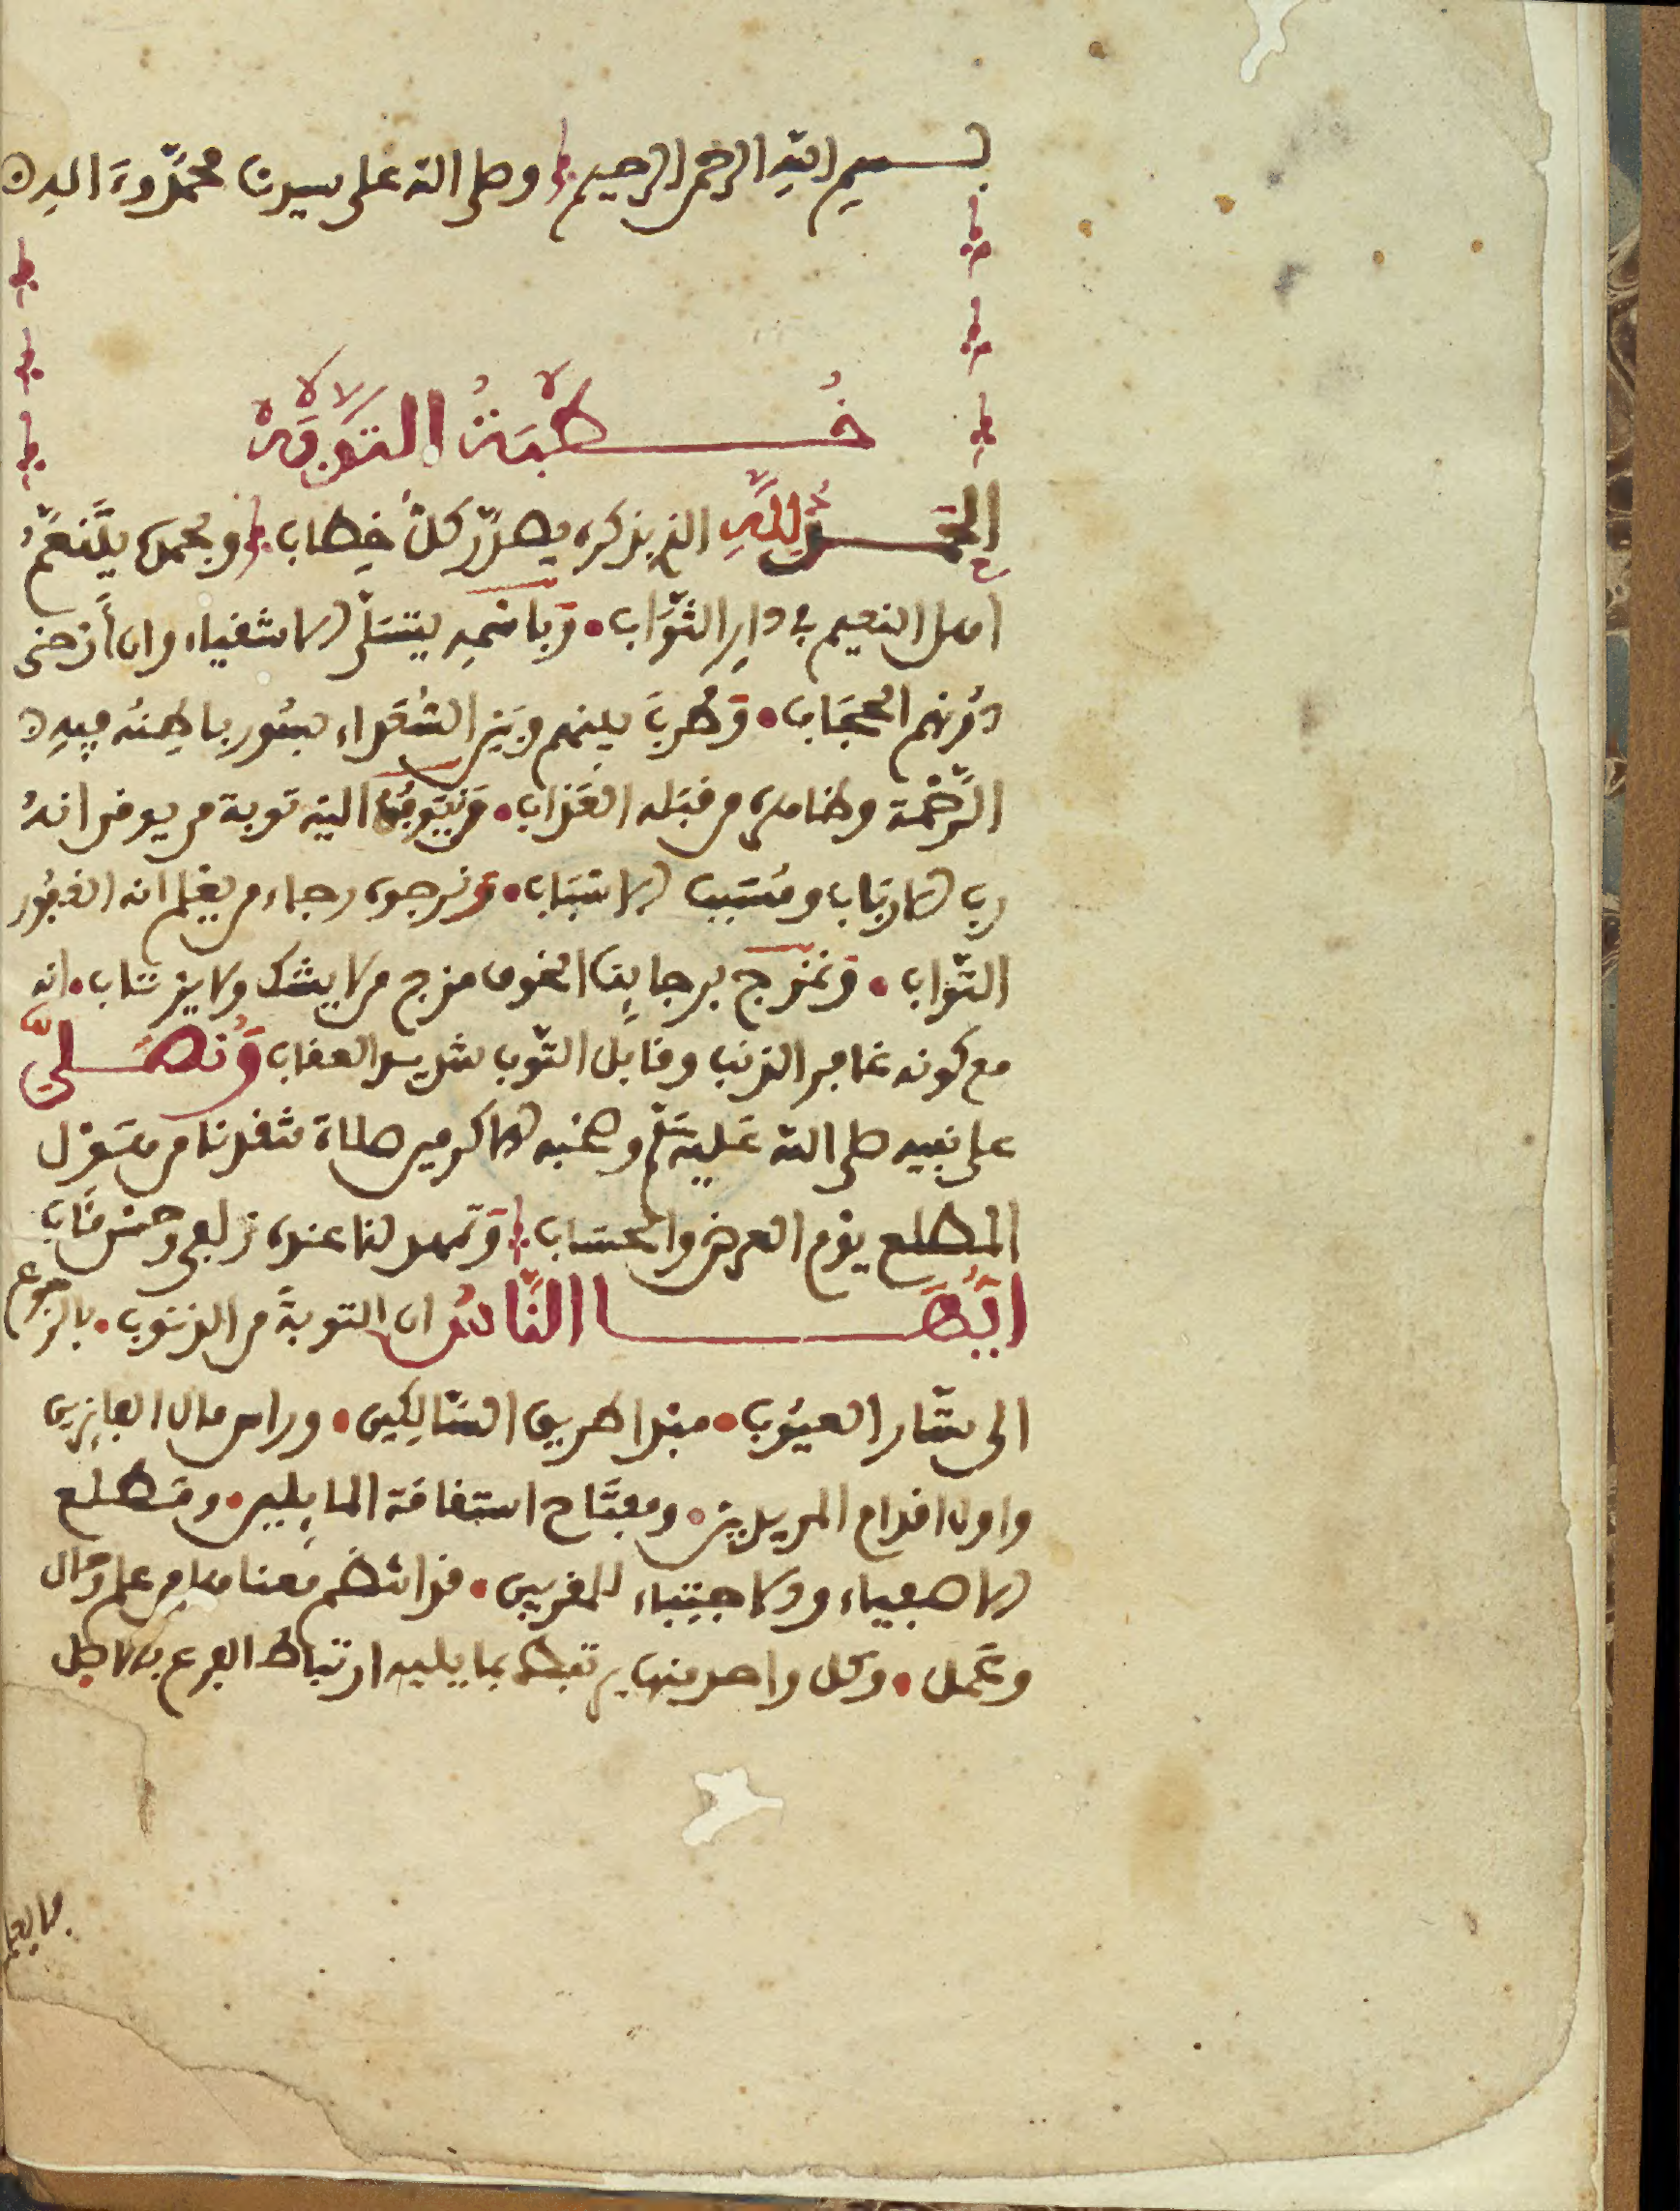 بسم الله الرحمن الرحيم وصلى الله على سيدنا محمد وءاله
خطبة التوبة
الحمد لله الذي بذكره يصدر كل خطاب وبحمده يتنعم
اهل النعيم في دار الثواب وباسمه يتسلى الاشقياء وان أرخى
دونهم الحجاب وضرب بينهم وبين السعداء بسور باطنه فيه
الرحمة وظاهره من قبله العذاب ونتوب اليه توبة من يوقن انه
رب الارباب ومسبب الاسباب ونرجوه رجاء من يعلم انه الغفور
التواب ونمزج برجاينا الخوف مزج من لا يشك ولا يرتاب انه
مع كونه غافر الذنب وقابل التوب شديد العقاب ونصلي
على نبيه صلى الله عليه وسلم وصحبه الاكرمين صلاة تنقذنا من هول
المطلع يوم العرض والحساب وتمهد لنا عنده زلفى وحسن مئاب
ايها الناس ان التوبة من الذنوب بالرجوع
الى ستار العيوب مبدا طريق السالكين وراس مال الفايزين
واول اقدام المريدين ومفتاح استقامة المايلين ومطلع
الاصفياء والاجتباء للمقربين قد انتظم معناها من علم وحال
وعمل وكل واحد منها يرتبط بما يليه ارتباط الفرع بالاصل